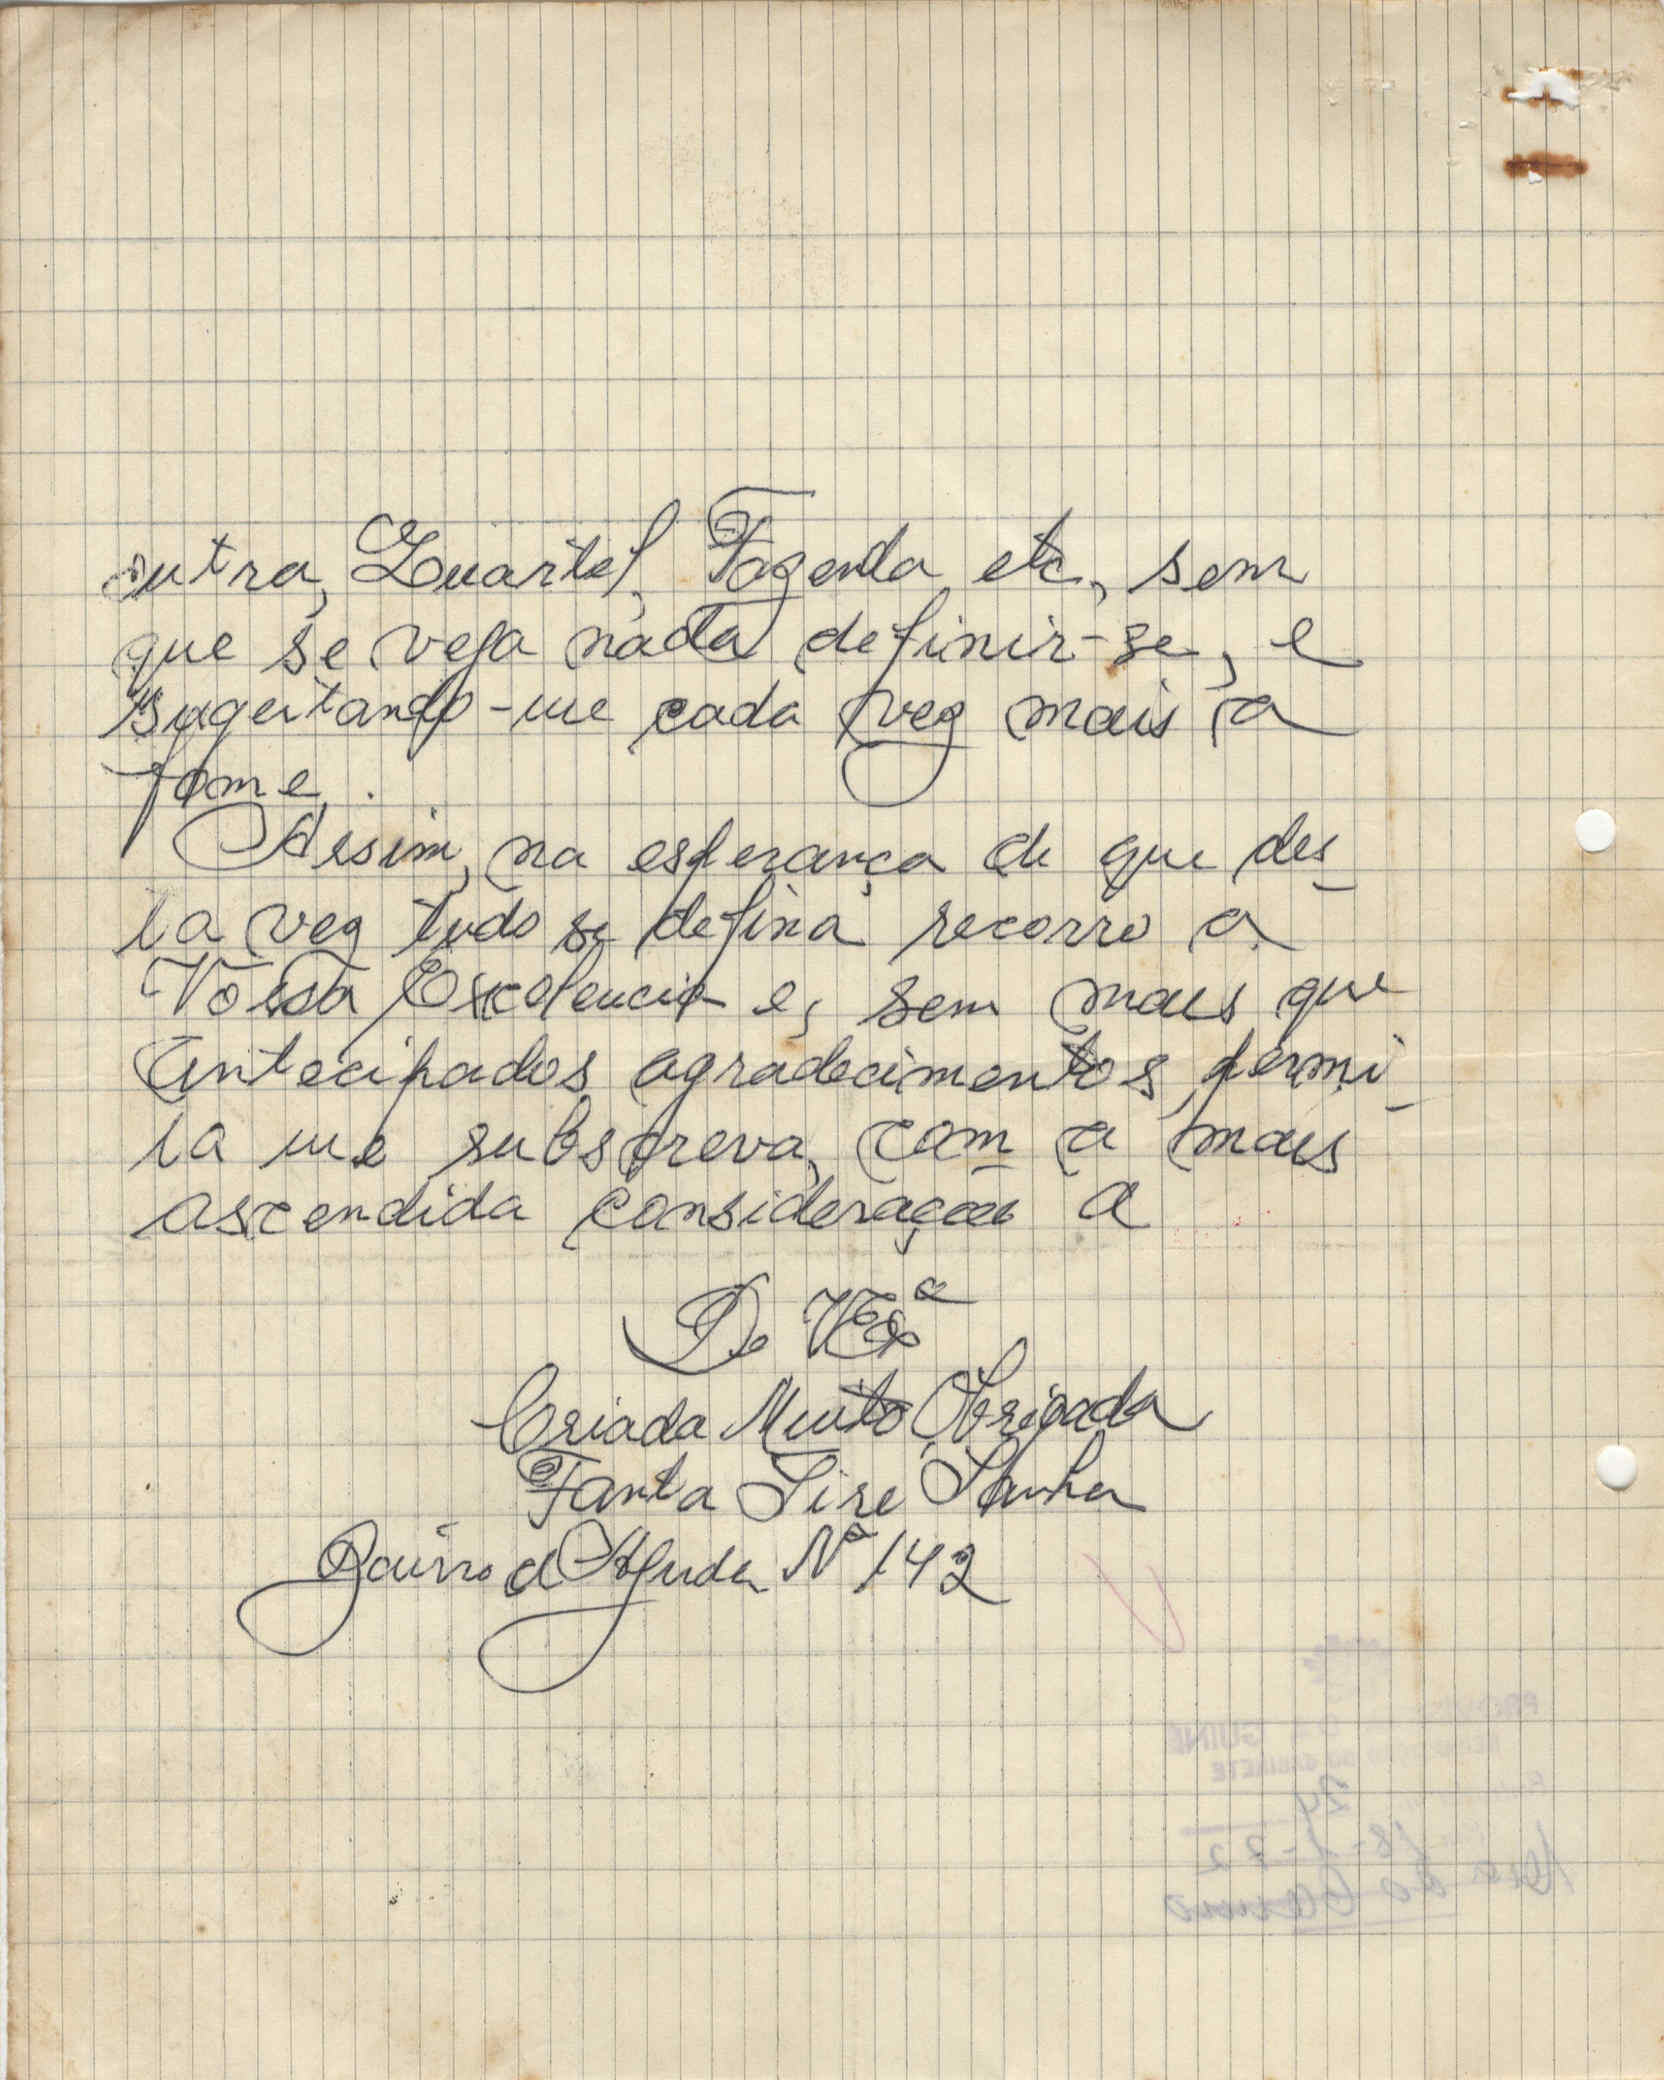 outra, Quartel, Fazenda etc, sem
que se veja nada definir-se, e
sugeitando-me cada vez mais a
fome.
Assim, na esperança de que des_
ta vez tudo se defina recorro a
Vossa Excelencia e, sem mais que
antecipados agradecimentos, permi_
ta me subscreva, com a mais
ascendida consideração a
De VExª
Criada Muito Obrigada
Fanta Sire Sanha
Bairro d'Ajuda Nº 142
GUINÉ
GABINETE
24
18-1-72